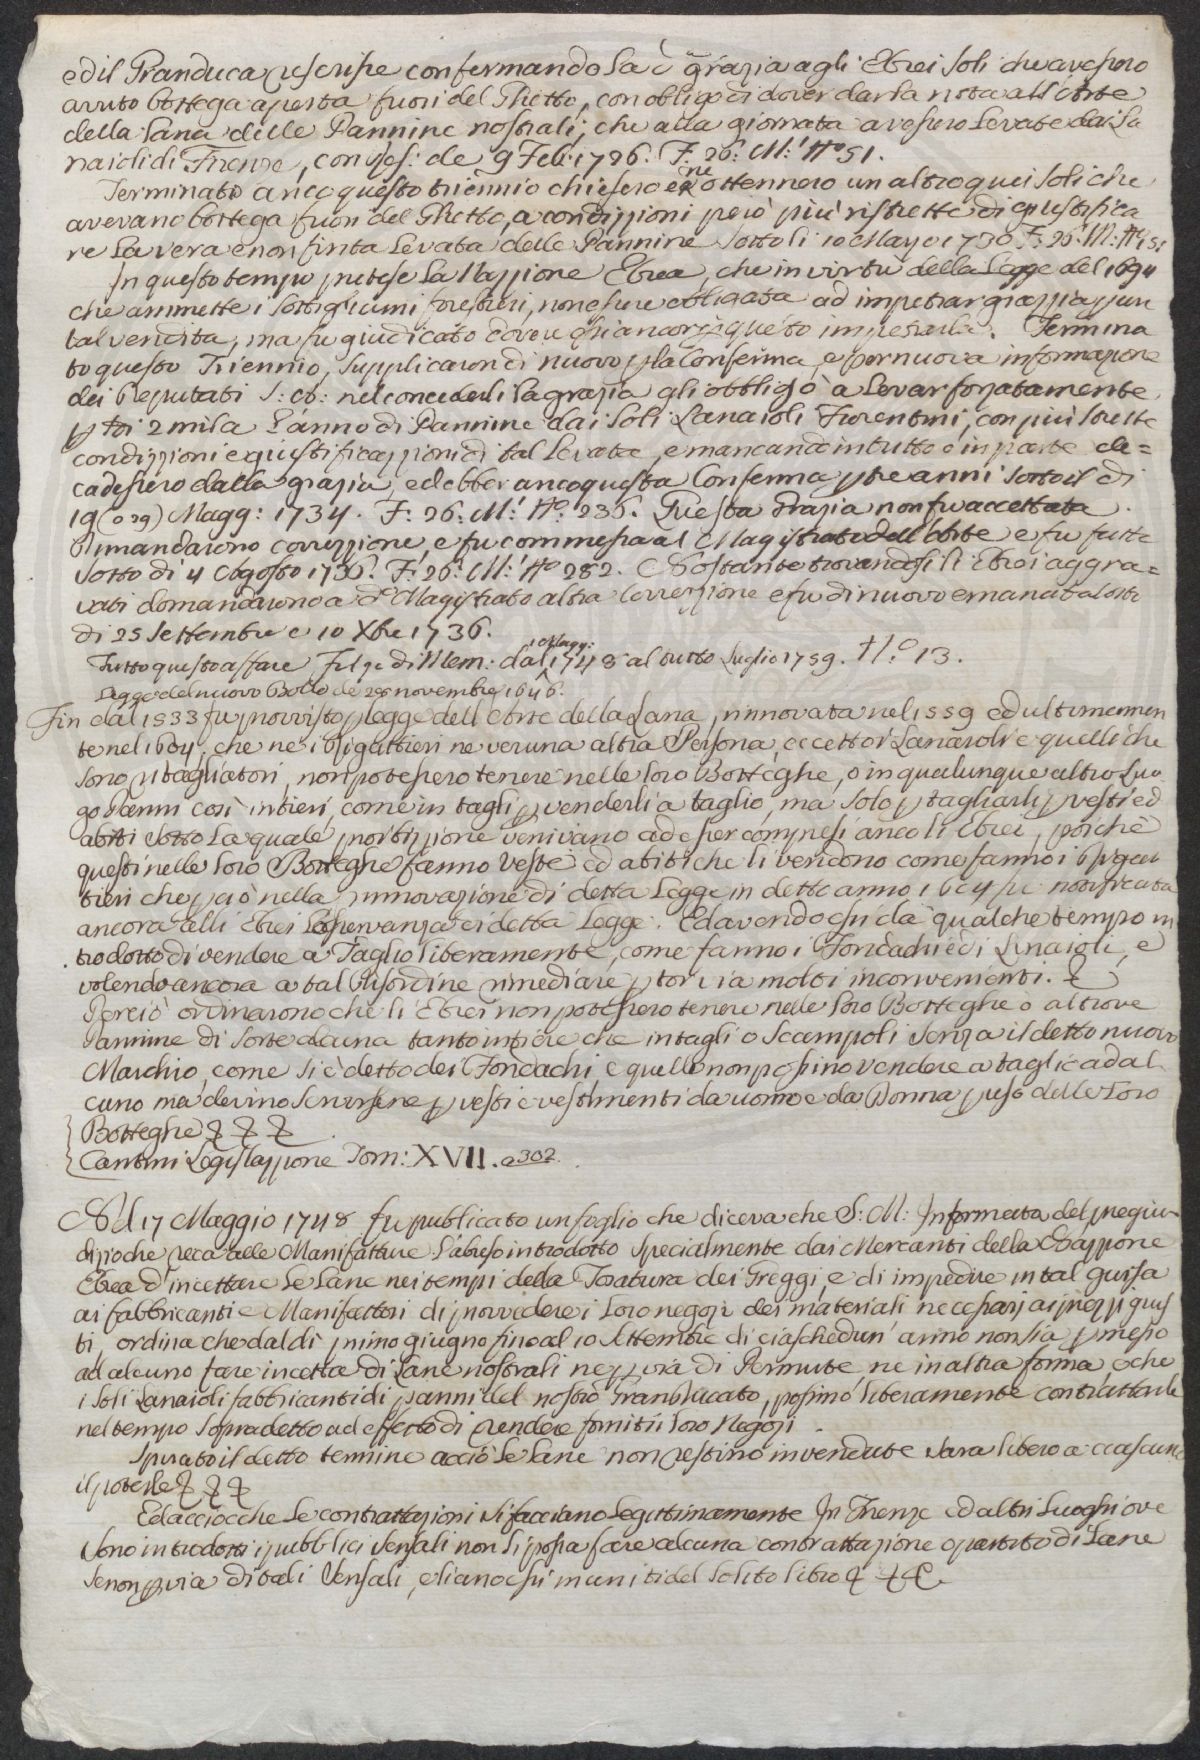 ed il Granduca rescrisse confermando la d. grazia agli Ebrei soli che avessero
avuto bottega aperta fuori del Ghetto, con obligo di dover dar la nota all'Arte
della Lana delle Pannine nostrali, che alla giornata avessero levate dai La
naioli di Firenze, con res: de 9 Feb: 1726. F: 26: M: N° 51.
Terminato anco questo triennio chiesero e ne ottennero un altro quei soli che
avevano bottega fuori del Ghetto, a condizzioni però più ristrette di giustifica
re la vera e non finta levata delle Pannine sotto li 10 Mayo 1730 F: 26: M: N° 151
In questo tempo pretese la Nazzione Ebrea, che in virtù della Legge del 1694
che ammette i sottigliumi forestieri, non essere obligata ad impetrar grazzia per
tal vendita, ma fu giudicato dovere gli ancor per questo impetrarla. Termina
to questo Triennio, supplicaron di nuovo p la Conferma, e per nuova informazione
dei Deputati S: A: nel concederli la grazia gli obbligò a levar forzatamente
p 2 mila l'anno di Pannine dai soli Lanaioli Fiorentini, con più strette
condizzioni e giustificazzioni di tal levata, e mancando in tutto o in parte de=
cadessero dalla grazia, ed ebber anco questa Conferma p tre anni sotto il dì
19 (o 29) Magg: 1734. F: 26: M: N°: 236. Questa grazia non fu accettata.
Dimandarono correzzione, e fu commessa al Magistrato dell'Arte e fu fatta
sotto dì 4 Agosto 1736. F: 26: M: N° 282. Nostante trovandosi li Ebrei aggra=
vati domandarono a d° Magistrato altra Correzzione e fu di nuovo emanata sotto
di 25 Settembre e 10 Xbre 1736.
Tutto questo affare Filza di Mem: dal 1 Magg: 1748 al tutto Luglio 1759. N.° 13.
Legge del nuovo Bollo de 28 novembre 1646.
Fin dal 1533 fu provvisto p legge dell'Arte della Lana, rinnovata nel 1559 ed ultimamen
te nel 1604, che ne i rigattieri ne veruna altra Persona, eccetto i Lanaioli e quelli che
sono ritagliatori, non potessero tenere nelle loro Botteghe, o in qualunque altro Luo
go Panni così intieri, come in tagli p venderli a taglio, ma solo p tagliarli p vesti ed
abiti sotto la quale proibizzione venivano ad esser compresi anco li Ebrei, poichè
questi nelle loro Botteghe fanno veste ed abiti che li vendono come fanno i rigat
tieri che p ciò nella rinnovazione di detta Legge in detto anno 1604 fu notificata
ancora alli Ebrei l'osservanza di detta Legge. Ed avendo essi da qualche tempo in
trodotto di vendere a Taglio liberamente, come fanno i Fondachi e di Linaioli, e
volendo ancora a tal disordine rimediare p tor via molti inconvenienti. &
Perciò ordinarono che li Ebrei non potessero tenere nelle loro Botteghe o altrove
Pannine di sorte alcuna tanto intiere che in tagli o scampoli senza il detto nuovo
Marchio, come si è detto dei Fondachi, e quelle non possino vendere a taglio ad al
cuno ma devino servirsene p vesti e vestimenti da uomo e da Donna p uso delle Loro
Botteghe & & &
Cantini Legislazzione Tom: XVII. a 302.
A dì 17 Maggio 1748 fu publicato un foglio che diceva che S: M: Informata del pregiu-
dizio che reca alle Manifatture l'abuso introdotto specialmente dai Mercanti della Nazzione
Ebrea d'incettare le Lane nei tempi della Tosatura dei Greggi, e di impedire in tal guisa
ai fabbricanti e Manifattori di provvedere i loro negozi dei materiali necessarj ai prezzi gius
ti, ordina che dal dì primo giugno fino al 10 Settembre di ciaschedun'anno non sia p messo
ad alcuno fare incetta di Lane nostrali ne p via di Permute, ne in altra forma, e che
i soli Lanaioli fabbricanti di panni del nostro Granducato, possino liberamente contrattarle
nel tempo sopradetto ad effetto di rendere forniti i loro Negozi.
Spirato il detto termine acciò le Lane non restino invendute sara libero a ciascuno
il poterle & & &
Ed acciocche le contrattazioni si facciano legittimamente In Firenze ed altri Luoghi ove
sono introdotti i pubblici Sensali non si possa fare alcuna contrattazione o partito di Lane
se non p via di tali Sensali, e siano essi muniti del solito libro & & &.